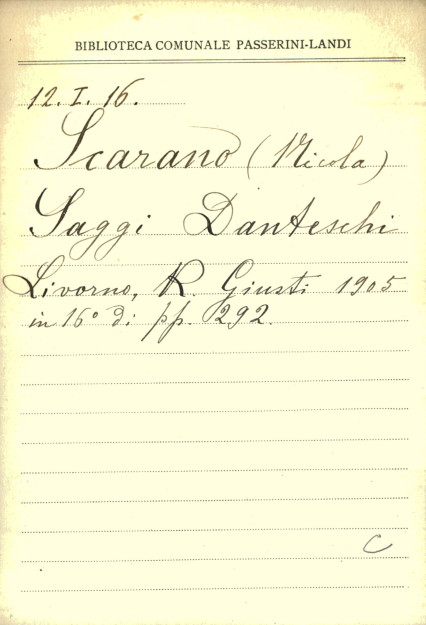 BIBLIOTECA COMUNALE PASSERINI-LANDI
12. I. 16.
Scarano (Nicola)
Saggi Danteschi
Livorno, R. Giusti 1905
in 16° di pp. 292.
C